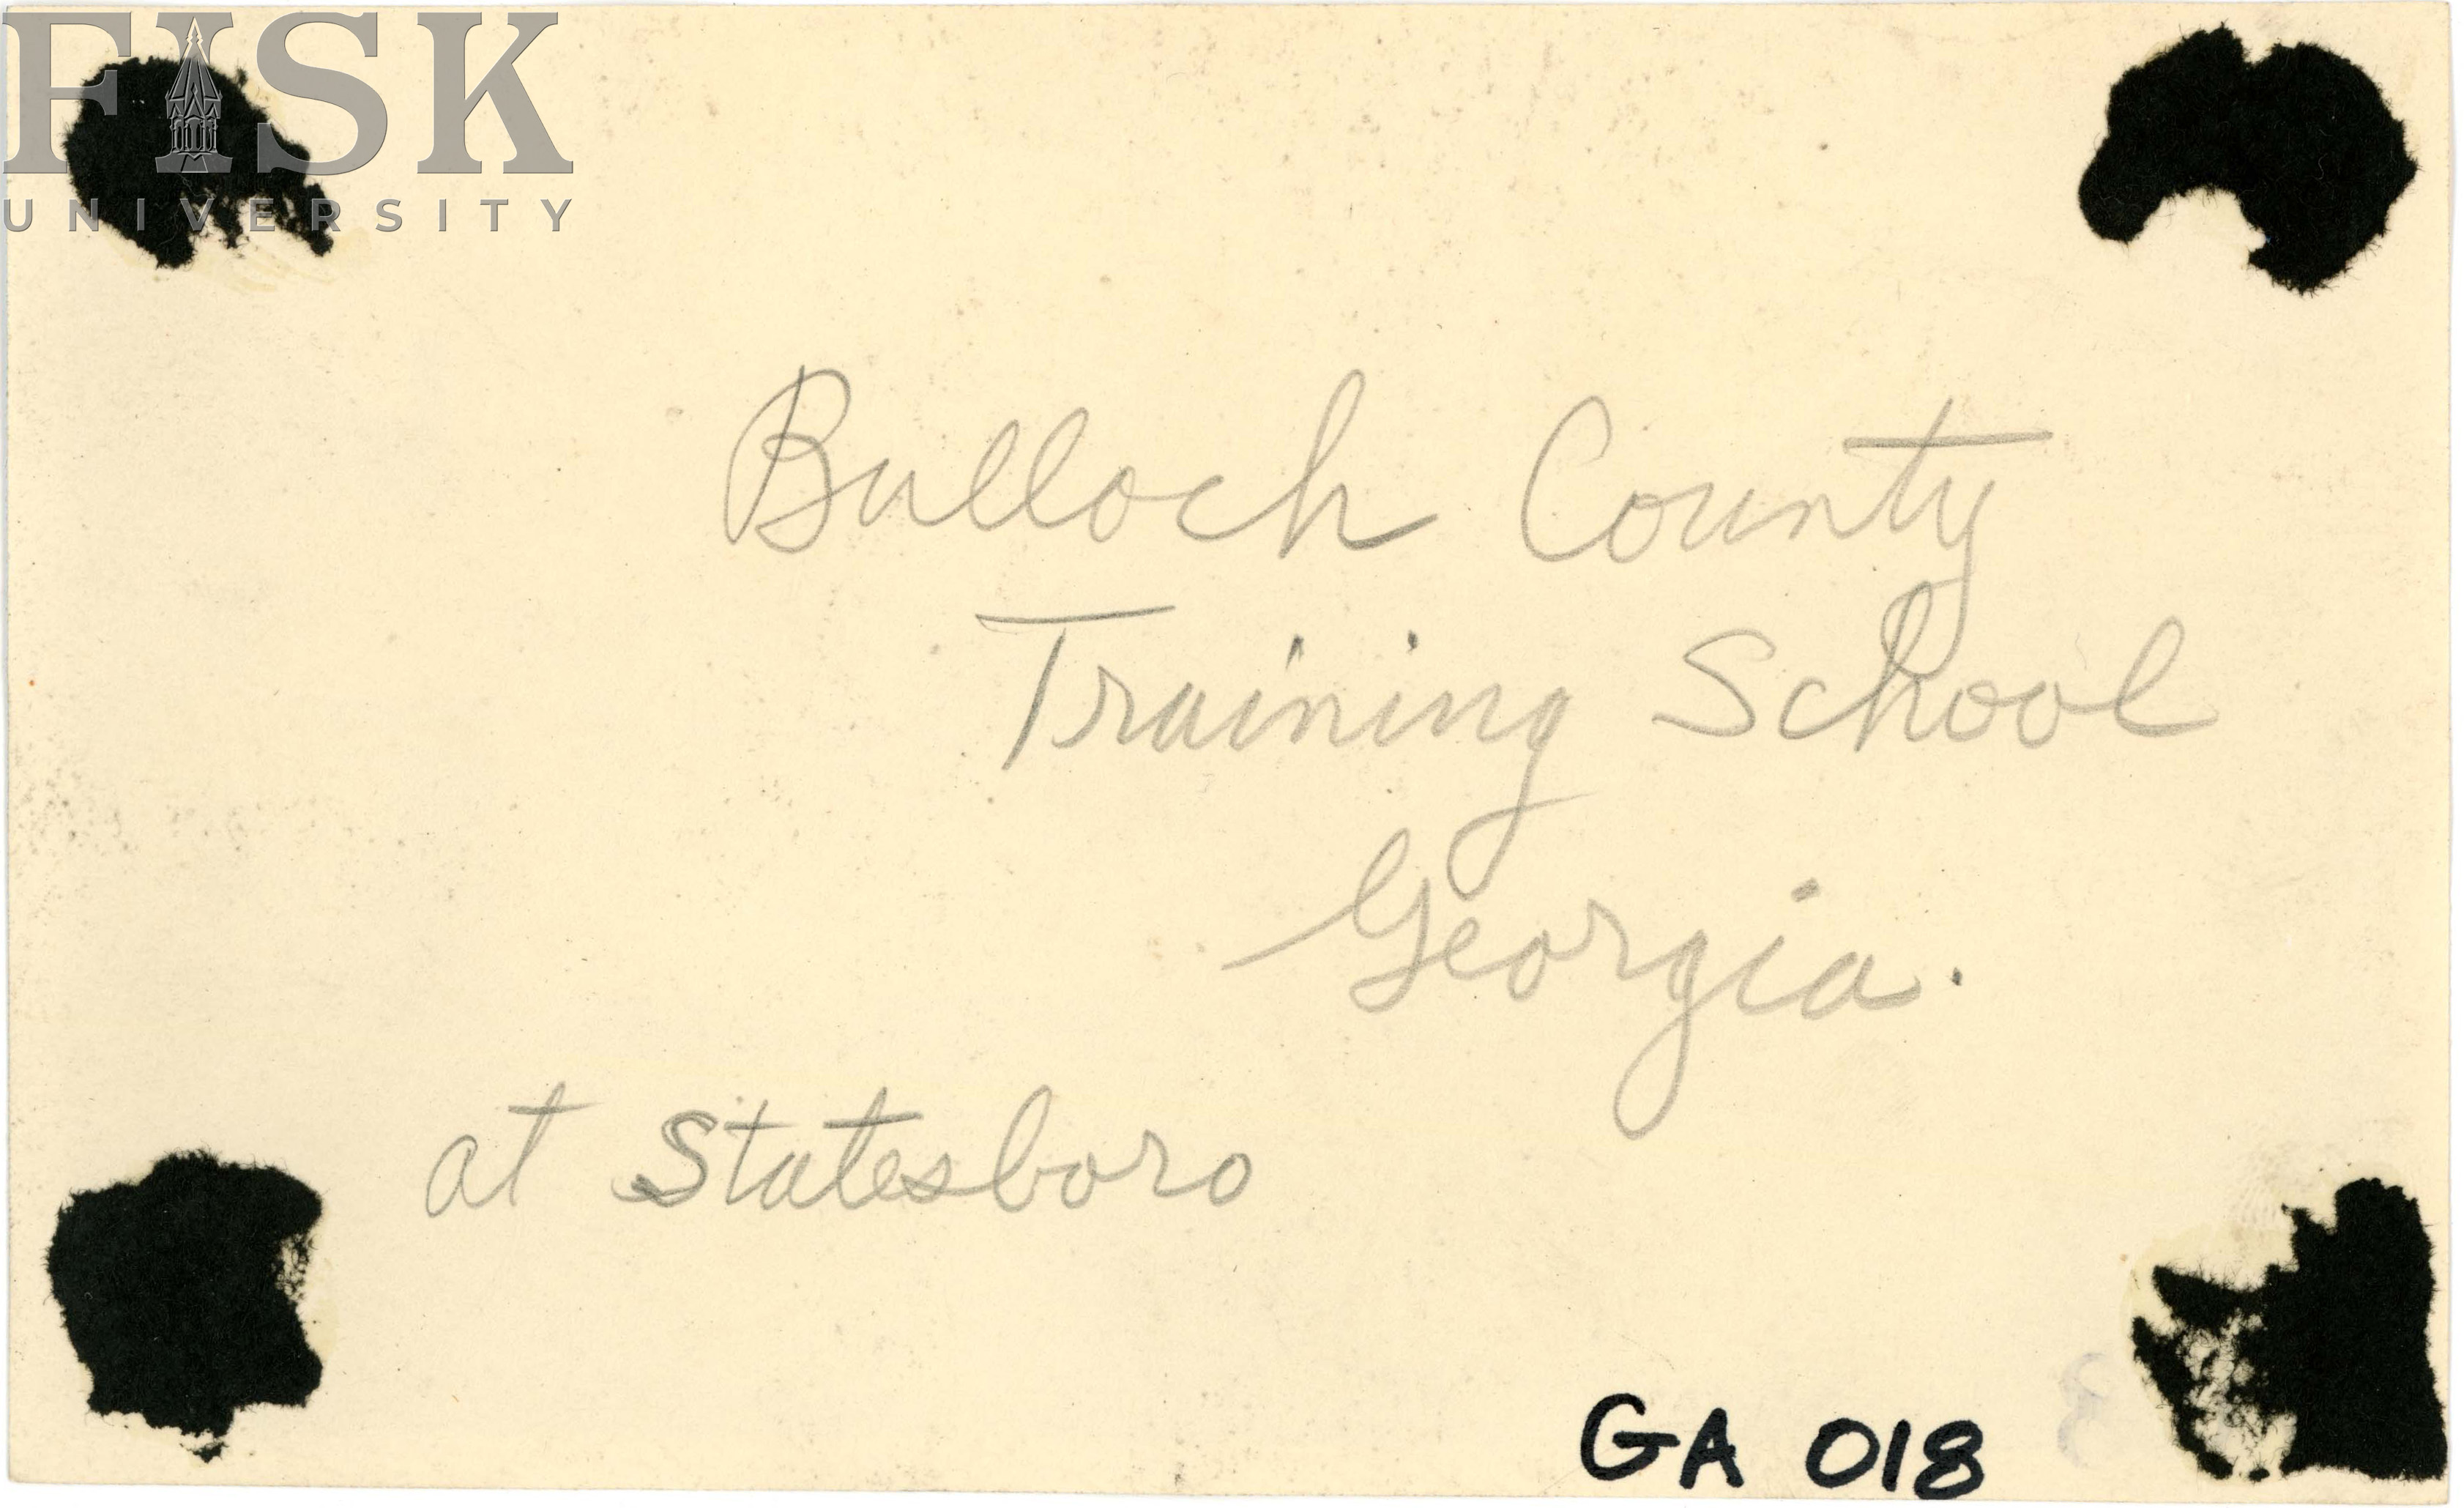 FISK
UNIVERSITY
Bulloch County
Training School
Georgia.
at Statesboro
GA 018